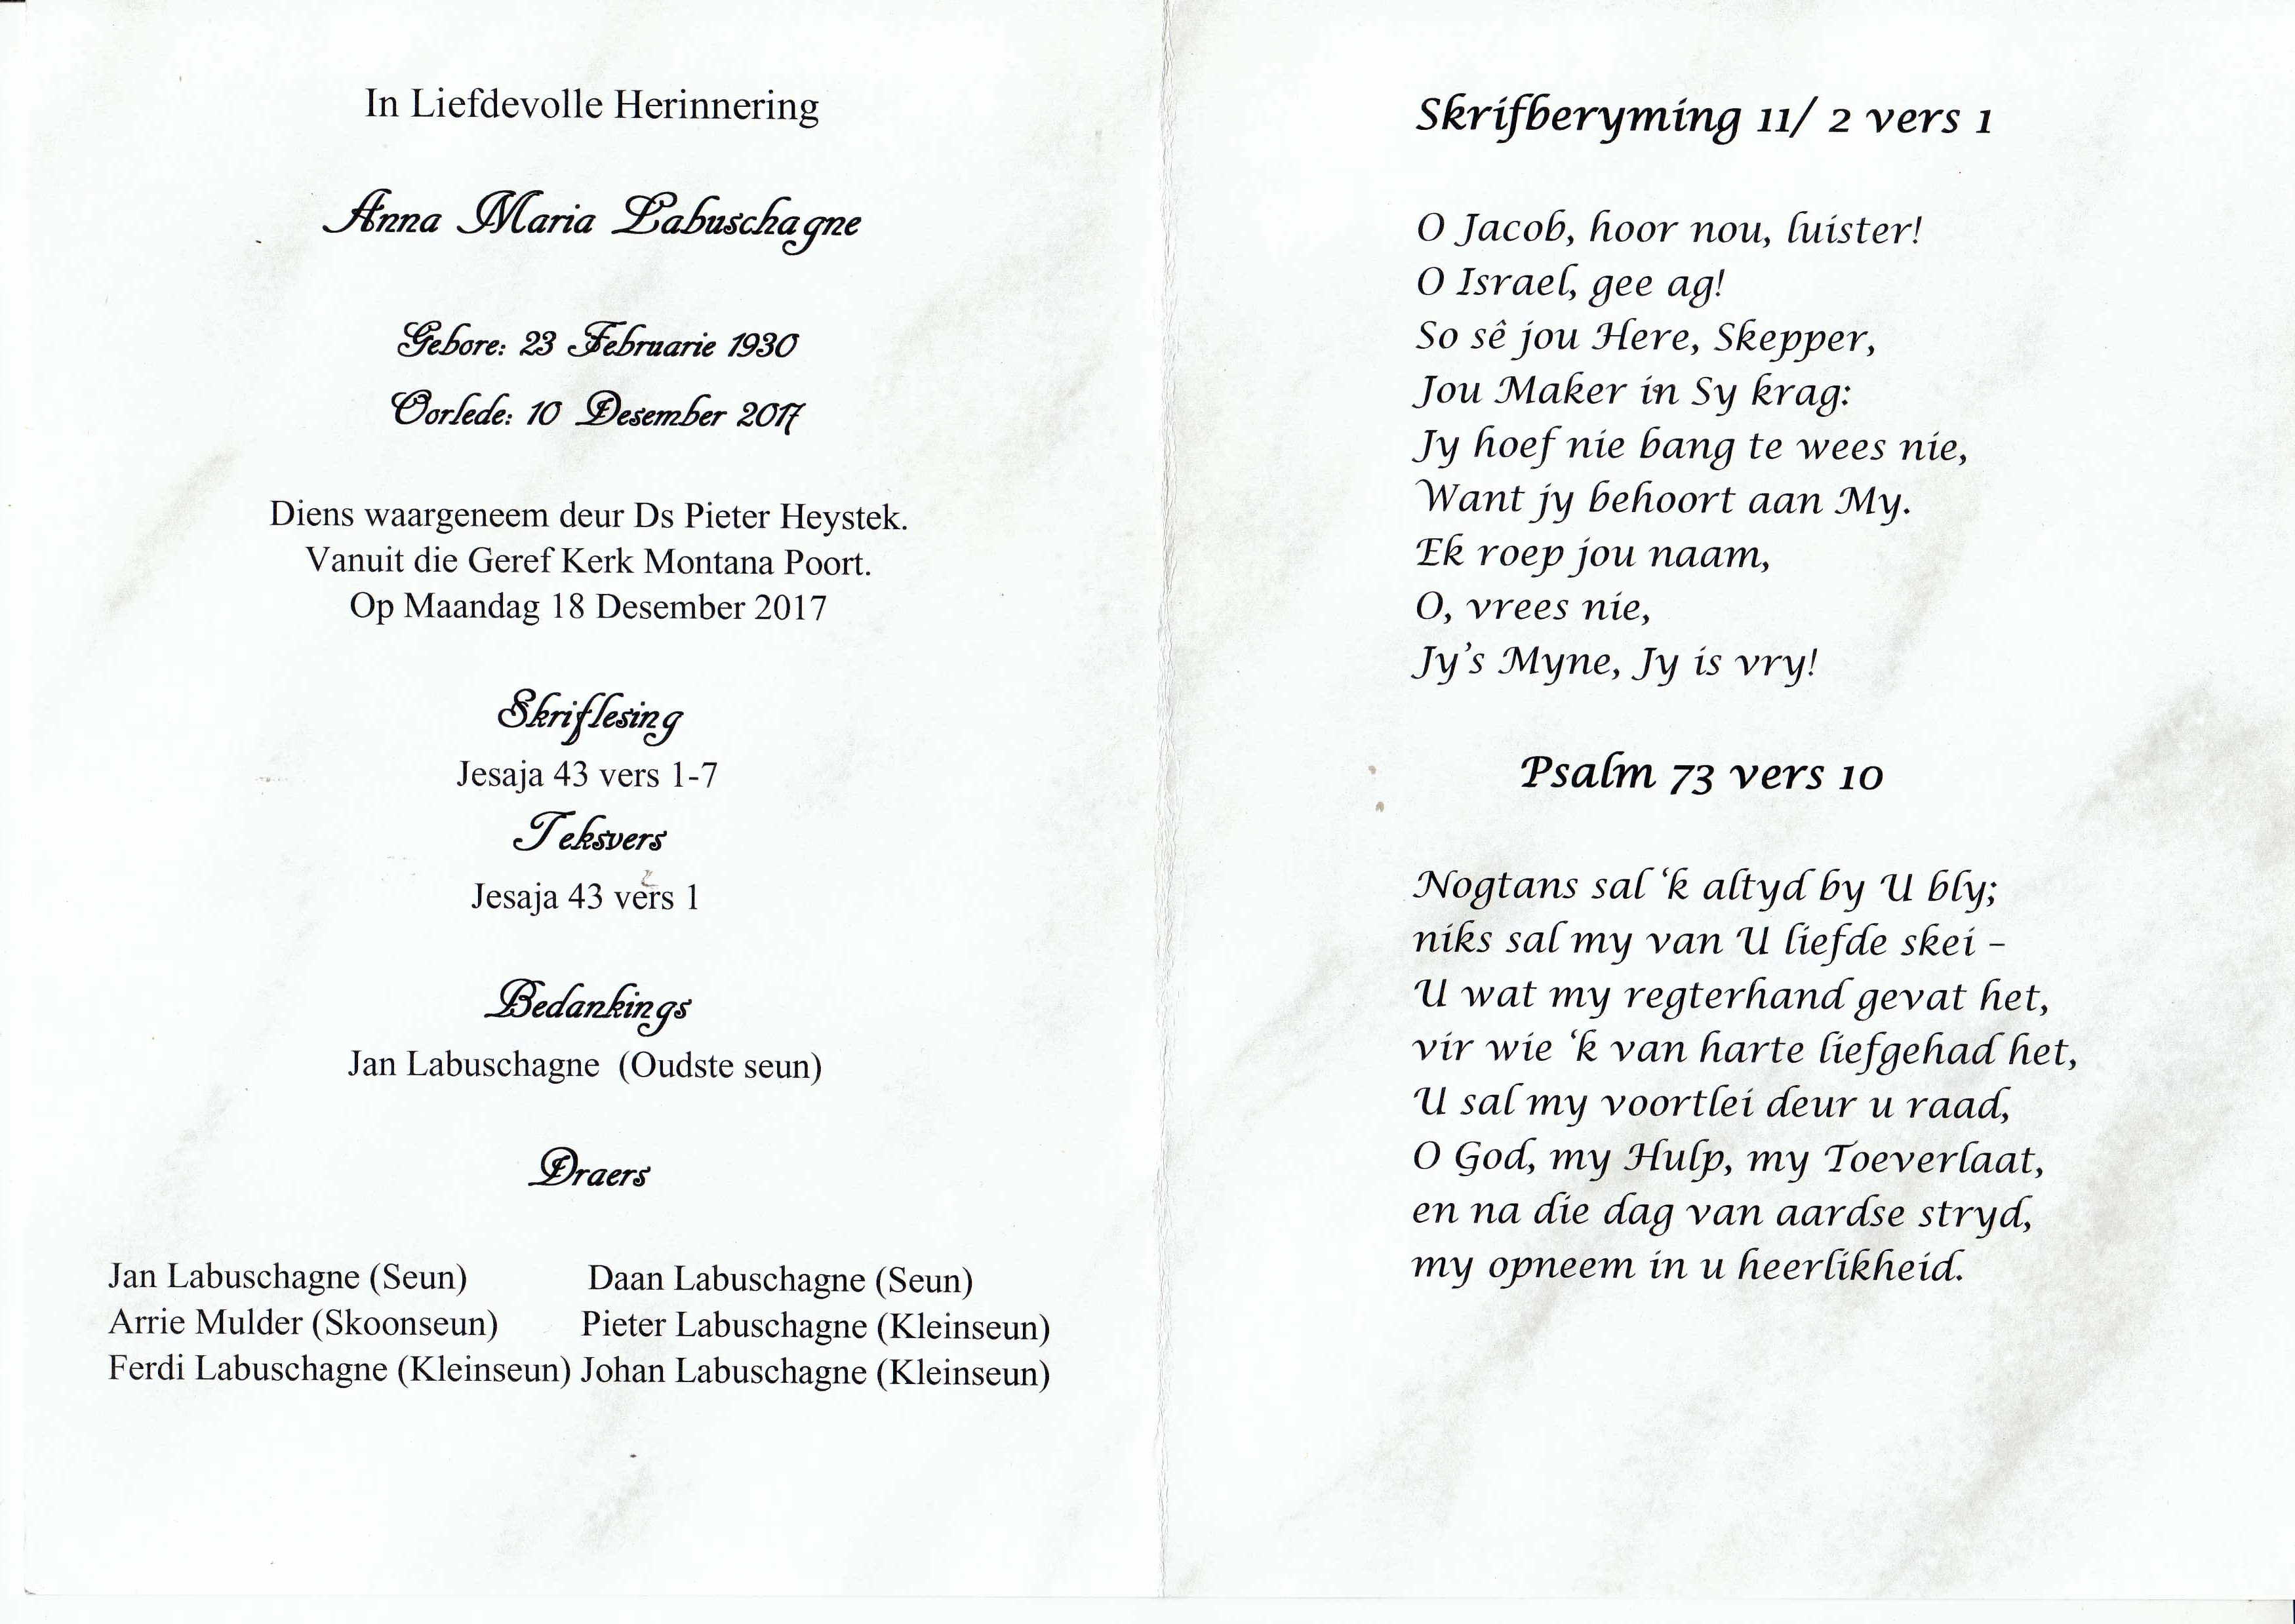 In Liefdevolle Herinnering
Anna Maria Labuschagne
Gebore: 23 Februarie 1930
Oorlede: 10 Desember 2017
Diens waargeneem deur Ds Pieter Heystek.
Vanuit die Geref Kerk Montana Poort.
Op Maandag 18 Desember 2017
Skriflesing
Jesaja 43 vers 1-7
Teksvers
Jesaja 43 vers 1
Bedankings
Jan Labuschagne (Oudste seun)
Draers
Jan Labuschagne (Seun) Daan Labuschagne (Seun)
Arrie Mulder (Skoonseun) Pieter Labuschagne (Kleinseun)
Ferdi Labuschagne (Kleinseun) Johan Labuschagne (Kleinseun)
Skrifberyming 11/ 2 vers 1
O Jacob, hoor nou, luister!
O Israel, gee ag!
So sê jou Here, Skepper,
Jou Maker in Sy krag:
Jy hoef nie bang te wees nie,
Want jy behoort aan My.
Ek roep jou naam,
O, vrees nie,
Jy's Myne, Jy is vry!
Psalm 73 vers 10
Nogtans sal ‘k altyd by U bly;
niks sal my van U liefde skei –
U wat my regterhand gevat het,
vir wie ‘k van harte liefgehad het,
U sal my voortlei deur u raad,
O God, my Hulp, my Toeverlaat,
en na die dag van aardse stryd,
my opneem in u heerlikheid.